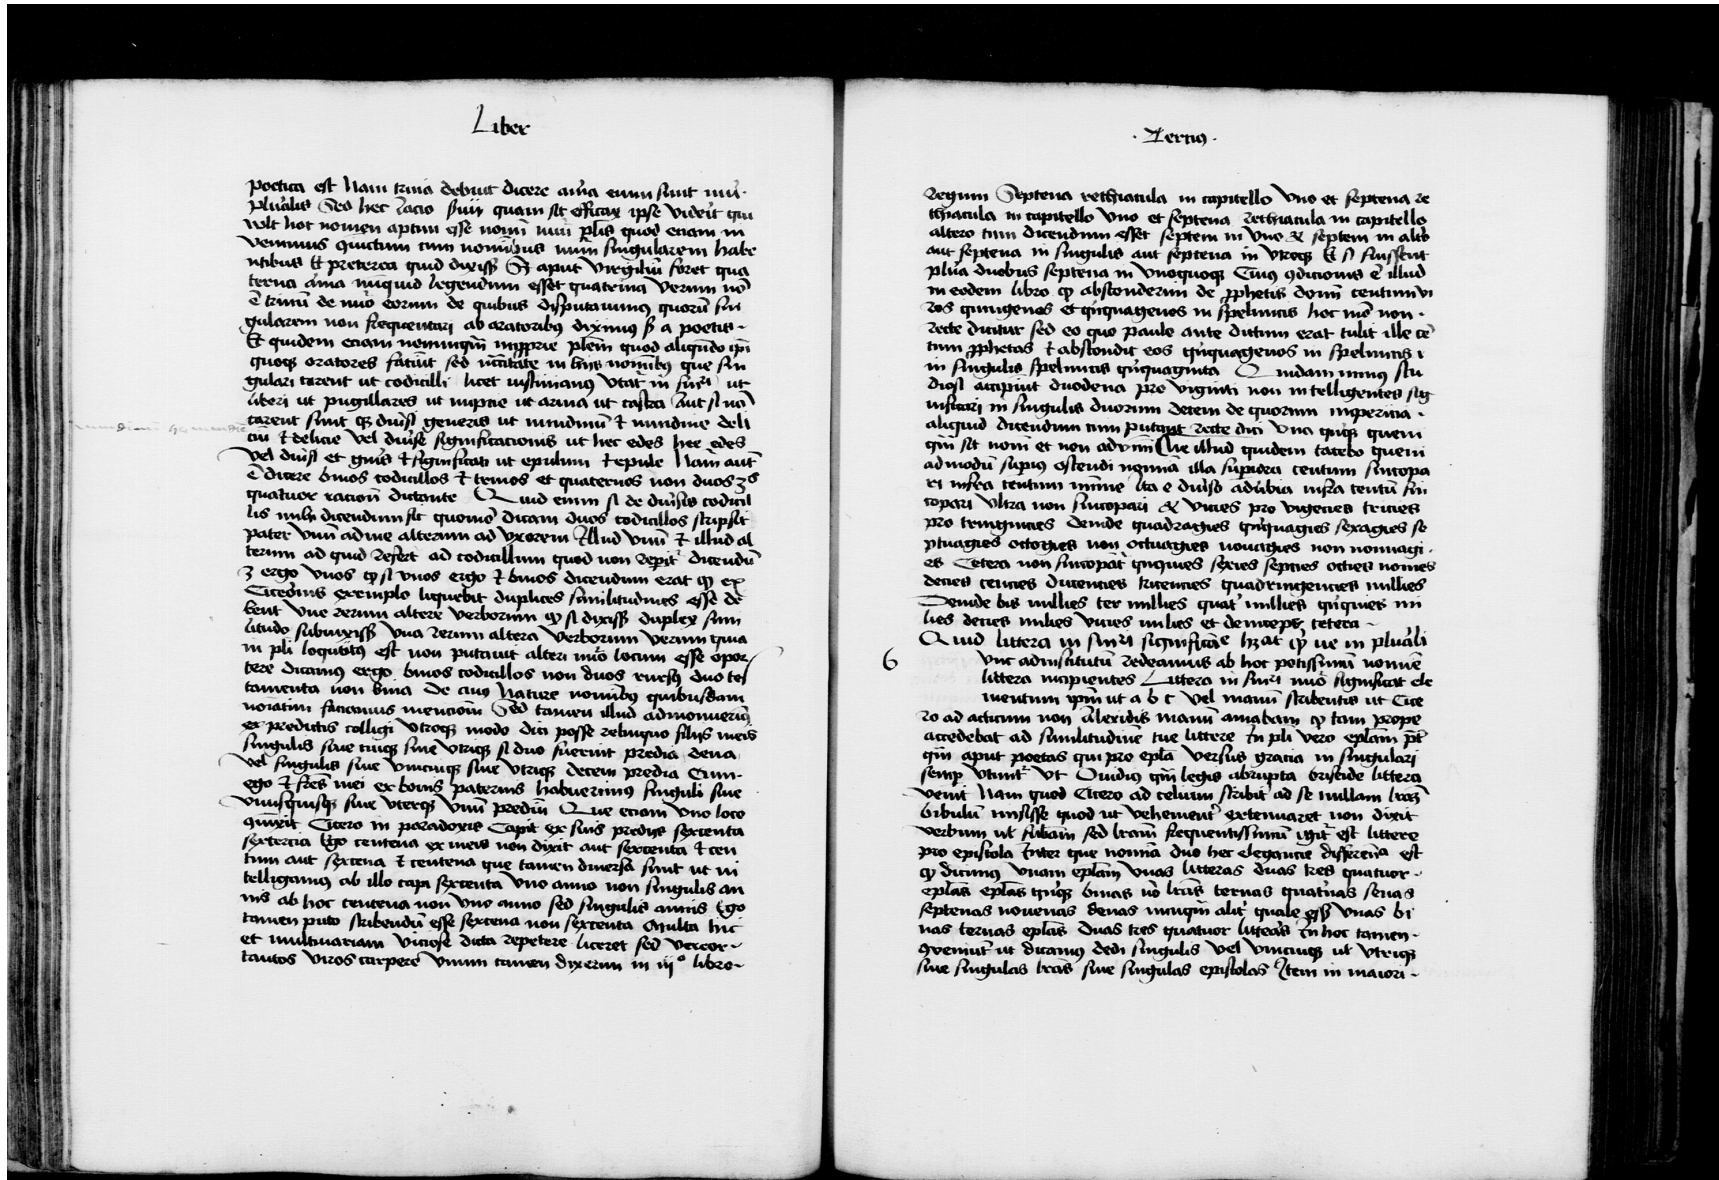 Liber
poetica est Nam trina debuit dicere arma enim sunt nũi
pluralis Sed hec racio quam sit efficax ipse viderit qui
volt hoc nomen aptum esse nomĩ nũi plĩs quod eciam in
venimus 9iuctum cum nominibus nũm singularem habe
ntibus Et preterea quid dixissꝫ Sꝫ aput virgiliũ foret qua
terna arma nũquid legendum esset quaterna verum nõ
ẽ trinũ de nũo eorum de quibus disputauimus quorũ sin
gularem non frequentari ab oratoribꝰ diximꝰ sꝫ a poetis
Et quidem eciam nonnunq̃m impprie plẽm quod aliqñdo ipi
quoqꝫ oratores faciũt sed in hijs nomĩbꝰ que sin
gulari carent ut codicilli licet iustinianus utat in sin ut
liberi ut pugillares ut nuptie ut arma ut castra Aut si nõ
carent sunt qꝫ diũsi generis ut nundinũ et nundine deli
ciũ et delicie vel diũse significationis ut hec edes hee edes
vel diũsi et gñis et significati ut epulum et epule Nam aut
ẽ dicere binos codicillos et trinos et quaternos non duos
quatuor racion dictante Quid enim si de diũsis codicil
lis mihi dicendum sit quomõ dicam duos codicillos scripsit
pater vnũ ad me alterum ad vxorem Illud vnũ et illud al
terum ad quid refert ad codicillum quod non repit dicendũ
ꝫ ergo vnos qꝫ si vnos ergo et binos dicendum erat qꝫ ex
Ciceronis exemplo liquebit duplices similitudines esse de
bent vne rerum altere verborum qꝫ si dixissꝫ duplex simi
litudo subiunxissꝫ vna rerum altera verborum verum quia
in pli loqutus est non putauit alteri nũo locum esse opor
tere dicamus ergo binos codicillos non duos rursꝰ duo tes
tamenta non bina De cuius nature nomĩbꝰ quibusdam
nominatim faciemus mencionem Sed tamen illud admonuerim
ex predictis colligi vtroqꝫ modo dici posse relinquo filijs meis
singulis siue cuiqꝫ siue vtriqꝫ si duo fuerint predia dena
vel singulis siue vnicuiqꝫ siue vtriqꝫ decem predia Cum
ego et frẽs mei ex bonis paternis habuerimꝰ singuli siue
vnusquisqꝫ siue vterqꝫ vnũ prediũ Que eciam vno loco
9iunxit Cicero in paradoxis Capit ex suis predijs sexcenta
sextercia Ego centena ex meis non dixit aut sexcenta et cen
tum aut sexcena et centena que tamen diuersa sunt ut in
telligamus ab illo capi sexcenta vno anno non singulis an
nis ab hoc centena non vno anno sed singulis annis Ego
tamen puto scribendũ esse sexcena non sexcenta Multa hic
et multuariam viciose dicta repetere liceret sed vereor
tantos viros carpere vnum tamen dixerim in iijº libro
Tercius
regum Septena rethiacula in capitello vno et septena re
thiacula in capitello vno et septena rethiacula in capitello
altero cum dicendum esset septem in vno & septem in altero
aut septena in singulis aut septena in vtroqꝫ Et si fuissent
plũa duobus septena in vnoquoqꝫ Cuius 9dicionis ẽ illud
in eodem libro qꝫ absconderim de pphetis domĩ centum vi
ros quingenos et qnquagenos in speluncis hoc mõ non
recte dicitur sed eo quo paule ante dictum erat tulit ille cẽ
tum pphetas et abscondit eos qnquagenos in speluncis i
in singulis speluncis qnquaginta Quidam minus stu
diosi accipiũt duodena pro viginti non intelligentes sig
nificari in singulis duorum decem de quorum inpericia
aliquid dicendum cum putant recte dici vna quiqꝫ quem
q̃m sit nomĩ et non adverbĩ Me illud quidem tacebo quem
admodũ supius ostendi nomina illa supiora centum sincopa
ri infra centum minime ita e diũso aduerbia infra centũ sin
copari vltra non sincopari & vicies pro vigecies tricies
pro trigincies deinde quadragies qnquagies sexagies se
ptuagies octogies non octuagies nonagies non nonnagi
es Cetera non sincopãt qnquies sexies septies octies nonies
decies centies ducenties tricenties quadringenties millies
Deinde bis millies ter millies quat millies qnquies mi
lies decies milies vicies milies et deinceps cetera
Quid littera in sinri significacie hꝫat qꝫ ue in plurali
6
Vnc ad institutũ redeamus ab hoc potissimũ nomĩe
littera incipientes Littera in sinri nũo significat ele
mentum ipm ut a b c vel manũ scribentis ut Cice
ro ad acticum non Alexidis manũ amabam qꝫ tam prope
accedebat ad similitudinẽ tue littere In pli vero eplam pt
q̃m aput poetas qui pro epla versus gracia in singulari
semp vtunt ut Ouidius q̃m legis abrupta briseide littera
venit Nam quod Cicero ad celium scribit ad se nullam lrãm
bibulũ misisse quod ut vehementꝰ extenuaret non dixit
verbum ut sillabam sed lrãm frequentissimũ igit est littere
pro epistola Inter que nomina duo hec elegancie differencia est
qꝫ dicimus vnam eplam vnas litteras duas tres quatuor
eplas eplas qnqꝫ binas uo lrãs ternas quaternas senas
septenas nouenas denas nunq̃m alit quale essꝫ vnas bi
nas ternas eplas duas tres quatuor litteras In hoc tamen
9veniunt ut dicamus dedi singulis vel vnicuiqꝫ ut vtriqꝫ
siue singulas lrãs siue singulas epistolas Item in maiori